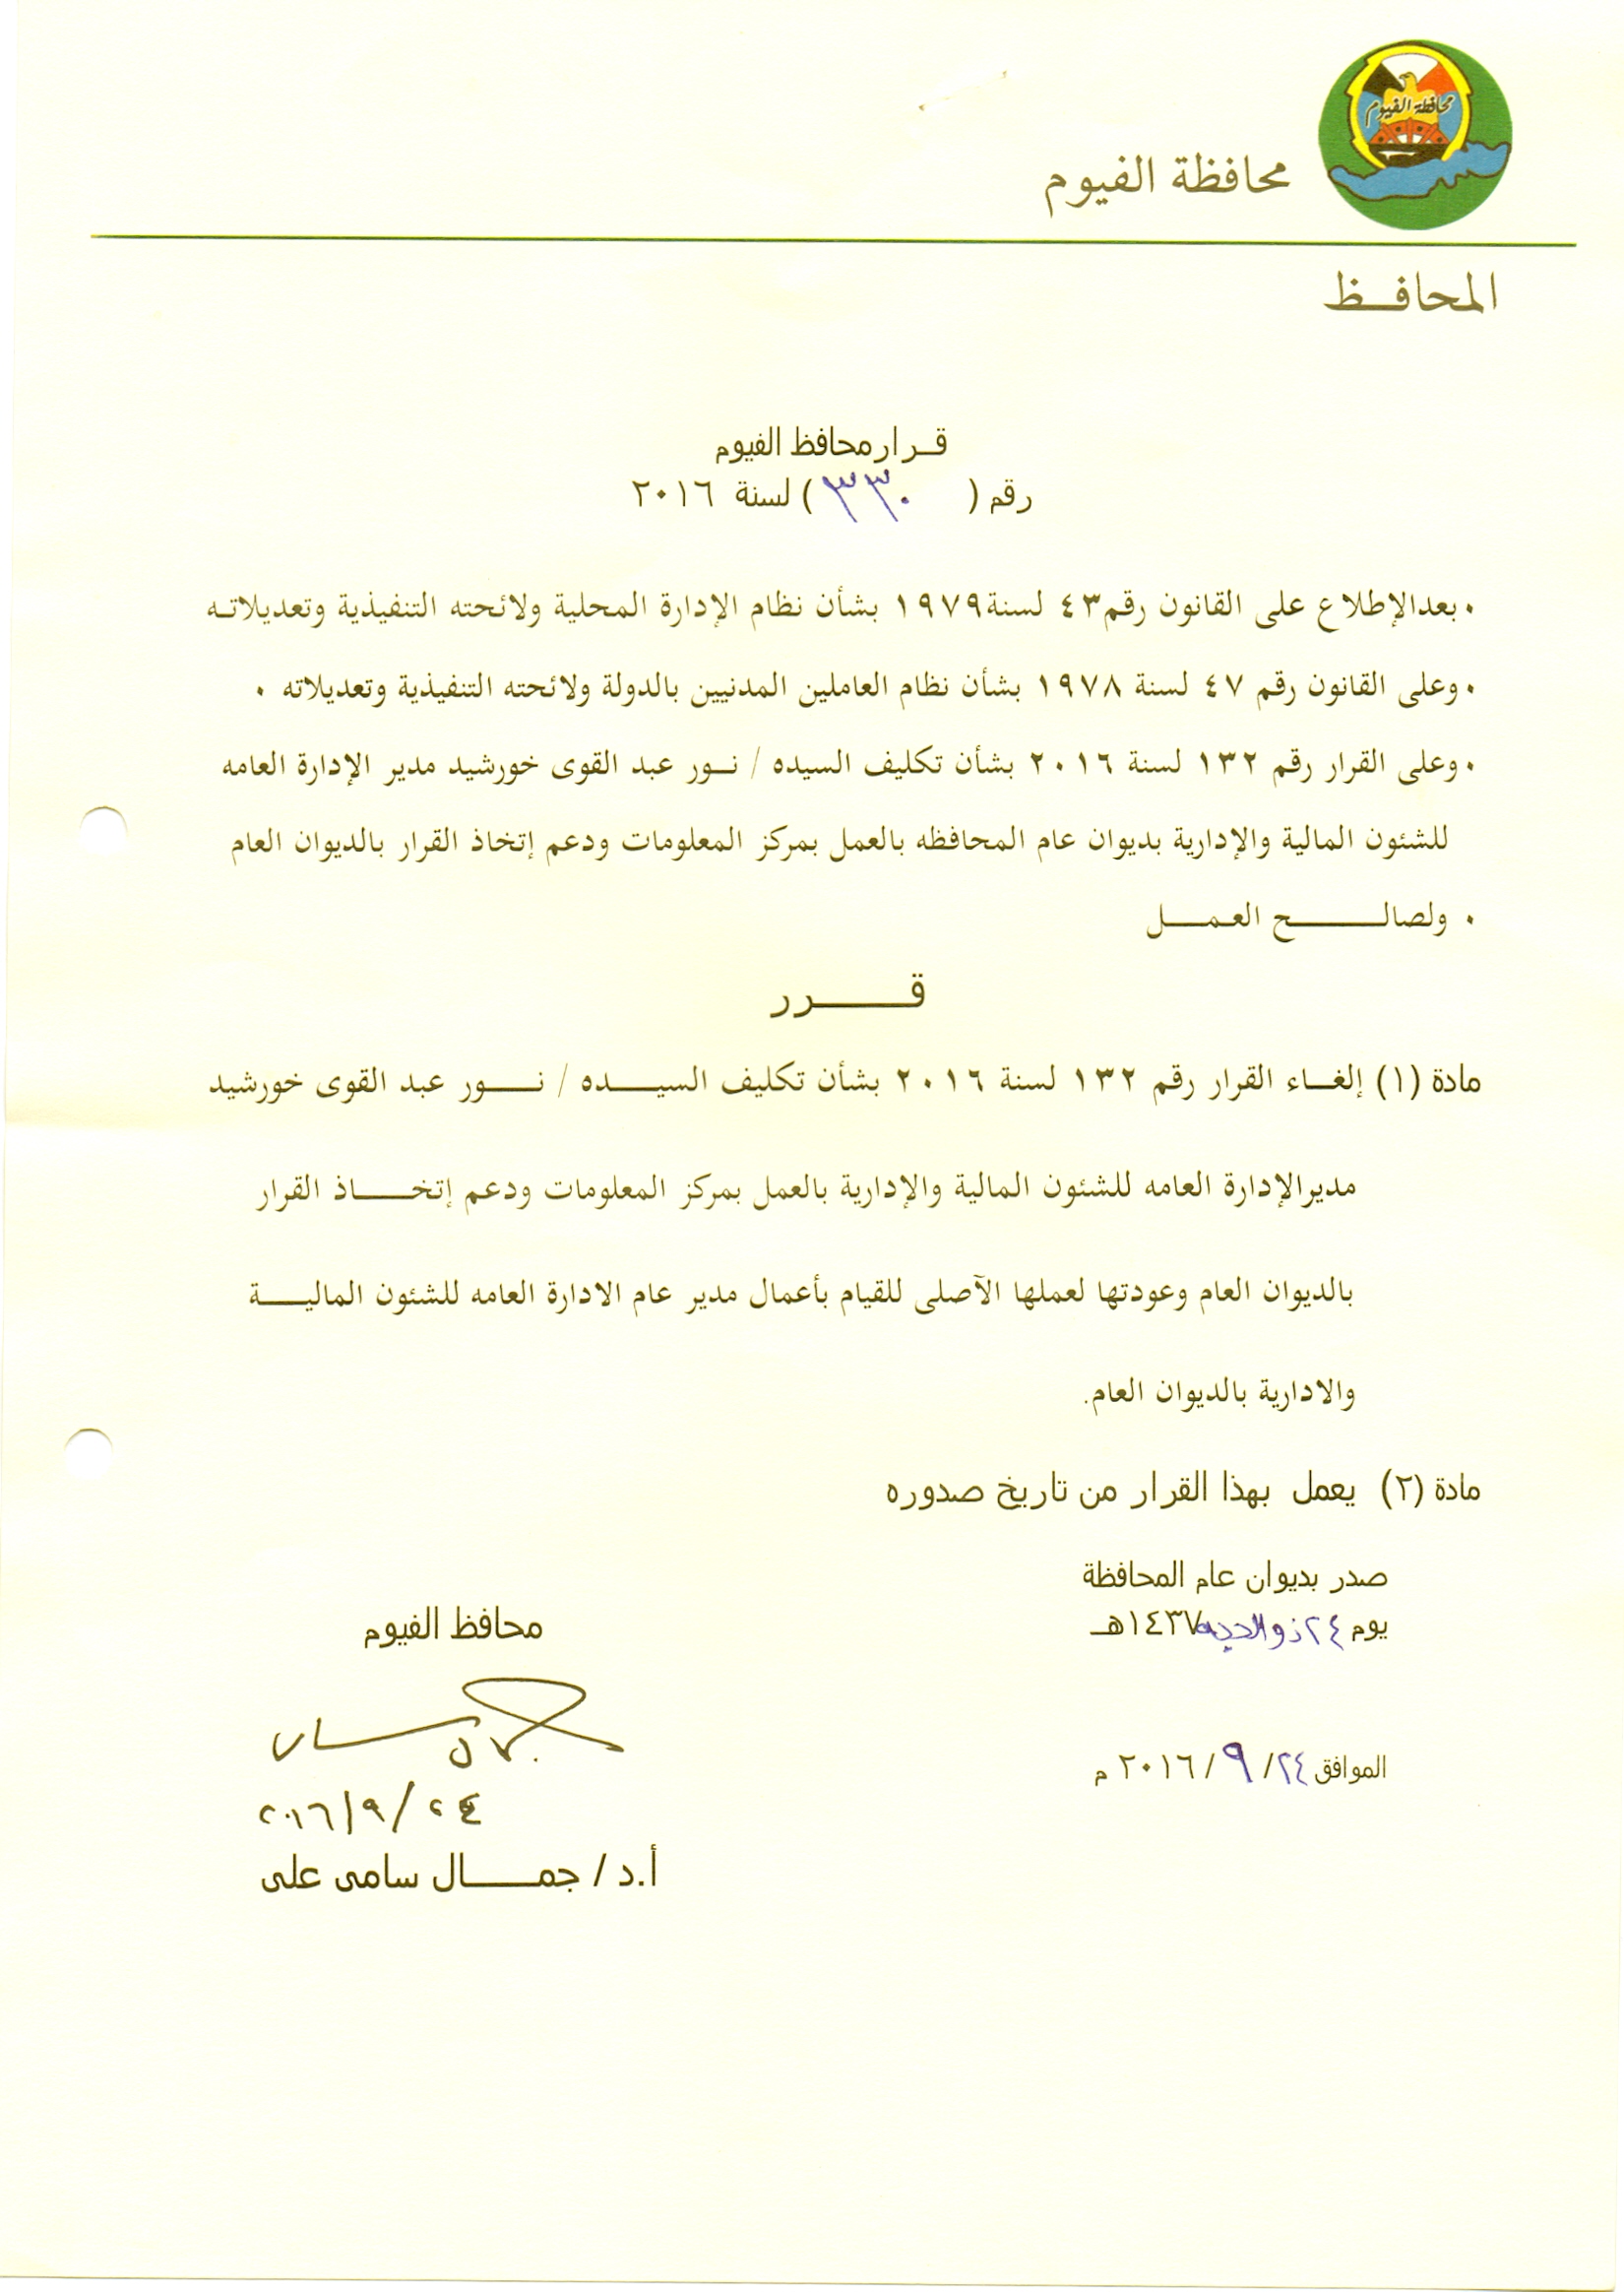 محافظة الفيوم
محافظة الفيوم
المحافــظ
قــرار محافظ الفيوم
رقم ( ٣٣٠ ) لسنة ٢٠١٦
• بعدالإطلاع على القانون رقم٤٣ لسنة١٩٧٩ بشأن نظام الإدارة المحلية ولائحته التنفيذية وتعديلاتـه
• وعلى القانون رقم ٤٧ لسنة ١٩٧٨ بشأن نظام العاملين المدنيين بالدولة ولائحته التنفيذية وتعديلاته •
• وعلى القرار رقم ١٣٢ لسنة ٢٠١٦ بشأن تكليف السيده / نــور عبد القوى خورشيد مدير الإدارة العامه
للشئون المالية والإدارية بديوان عام المحافظه بالعمل بمركز المعلومات ودعم إتخاذ القرار بالديوان العام
• ولصالــــــح العمـــل
قـــــــرر
مادة (١) إلغــاء القرار رقم ١٣٢ لسنة ٢٠١٦ بشأن تكليف السيـــده / نــــور عبد القوى خورشيد
مديرالإدارة العامه للشئون المالية والإدارية بالعمل بمركز المعلومات ودعم إتخــــاذ القرار
بالديوان العام وعودتها لعملها الآصلى للقيام بأعمال مدير عام الادارة العامه للشئون الماليــــة
والادارية بالديوان العام.
مادة (٢) يعمل بهذا القرار من تاريخ صدوره
صدر بديوان عام المحافظة
يوم ٢٤ ذو الحجه ١٤٣٧هـ
الموافق ٢٤/ ٩ / ٢٠١٦ م
محافظ الفيوم
٢٠١٦/٩/٢٤
أ.د / جمـــــال سامى على